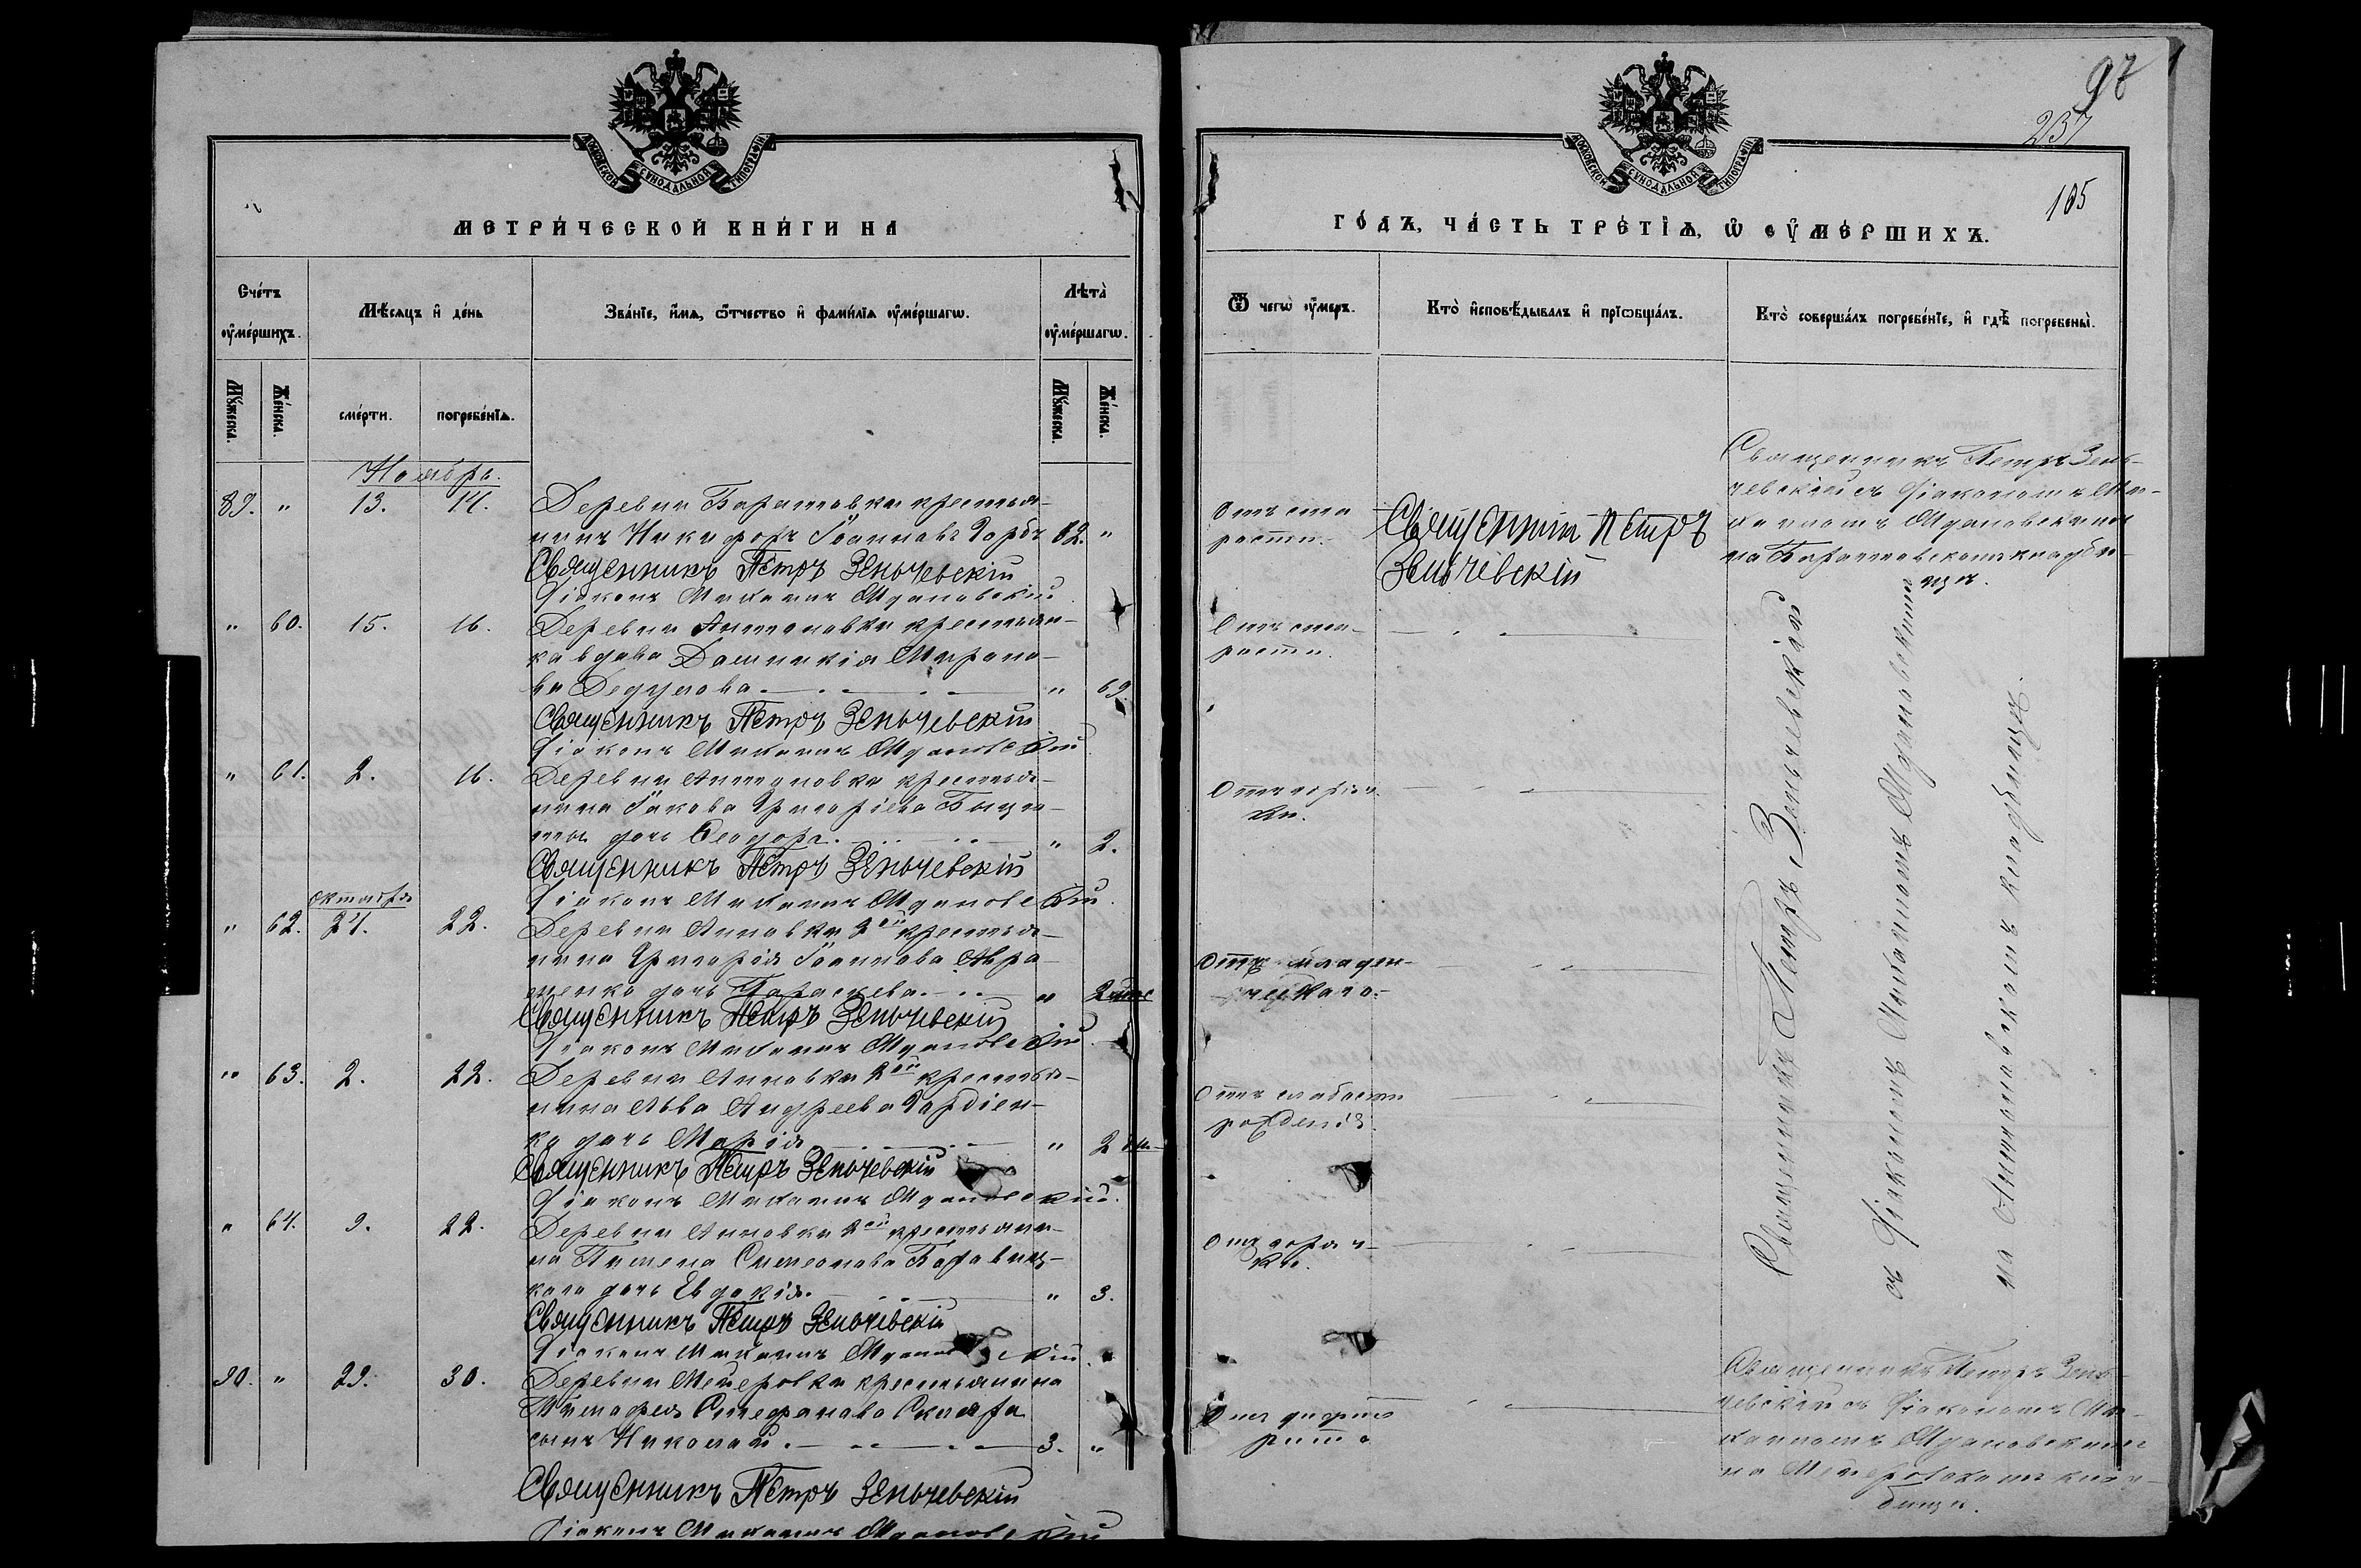 МОСКОВСКОЙ СѴНОДАЛЬНОЙ ТИПОГРАФІИ
МЕТРИ́ЧЕСКОЙ КНИ́ГИ НА
Счéтъ оу҆мéршихъ.
Мѣ́сяцъ и҆ дéнь
Звáнїе, и҆́мѧ, ѻ҆́тчество и҆ фами́лїѧ оу҆мéршагѡ.
Лѣ́та оу҆мéршагѡ.
Мꙋ́жеска.
Жéнска.
смéрти.
погребéнїѧ.
Мꙋ́жеска.
Жéнска.
Ноябрь.
89. " 13. 14. Деревни Баратовки крестья-
нинъ Никифоръ Іоанновъ Горбъ 82. "
Священникъ Петръ Зеньчевскій
Діаконъ Михаилъ Ждановскій
" 60. 15. 16. Деревни Антоновки крестьян-
ка вдова Домникія Мироно-
ва Дедулова " 69.
Священникъ Петръ Зеньчевскій
Діаконъ Михаилъ Ждановскій
" 61. 2. 16. Деревни Антоновки крестья-
нина Іакова Григоріева
дочь Ѳеодора " 2.
Священникъ Петръ Зеньчевскій
октября
Діаконъ Михаилъ Ждановскій
" 62. 24. 22. Деревни Анновки 2ой крестья-
нина Григорія Іоаннова Авра-
менко дочь Параскева "
Священникъ Петръ Зеньчевскій
Діаконъ Михаилъ Ждановскій
" 63. 2. 22. Деревни Анновки 2ой крестья-
нина Льва Андреева Гордіен-
ко дочь Марія " 2
Священникъ Петръ Зеньчевскій
Діаконъ Михаилъ Ждановскій
" 64. 9. 22. Деревни Анновки 2ой крестьяни-
на Пимена Симеонова Боровиц-
кого дочь Евдокія. " 3.
Священникъ Петръ Зеньчевскій
Діаконъ Михаилъ Ждановскій
90. " 29. 30. Деревни Мейеровки крестьянина
Тимофея Стефанова Скляра
сынъ Николай 3. "
Священникъ Петръ Зеньчевскій
Діаконъ Михаилъ Ждановскій
97
257
165
МОСКОВСКОЙ СѴНОДАЛЬНОЙ ТИПОГРАФІИ
ГО́ДЪ, ЧА́СТЬ ТРЕ́ТЇѦ, Ѡ҆ ОУ҆МЕ́РШИХЪ.
Ѿ чегѡ̀ оу҆́меръ.
Кто̀ и҆сповѣ́дывалъ и҆ прїѡбщáлъ.
Кто̀ совершáлъ погребéнїе, и҆ гдѣ̀ погребены̀.
Отъ ста
рости.
Священникъ Петръ
Зеньчевскій
Священникъ Петръ Зень-
чевскій съ Діакономъ Ми-
хаиломъ Ждановскимъ
на Баратовскомъ кладби-
щѣ.
Отъ ста-
рости.
Отъ горяч
ки.
Отъ младен-
ческаго.
Отъ слабости
рожденія.
Отъ горяч-
ки.
Священникъ Петръ Зеньчевскій
съ Діакономъ Михаиломъ Ждановскимъ
на Антоновскомъ кладбищѣ.
Отъ дифте
рита
Священникъ Петръ Зень-
чевскій съ Діакономъ Ми-
хаиломъ Ждановскимъ
на Мейеровскомъ клад-
бищѣ.